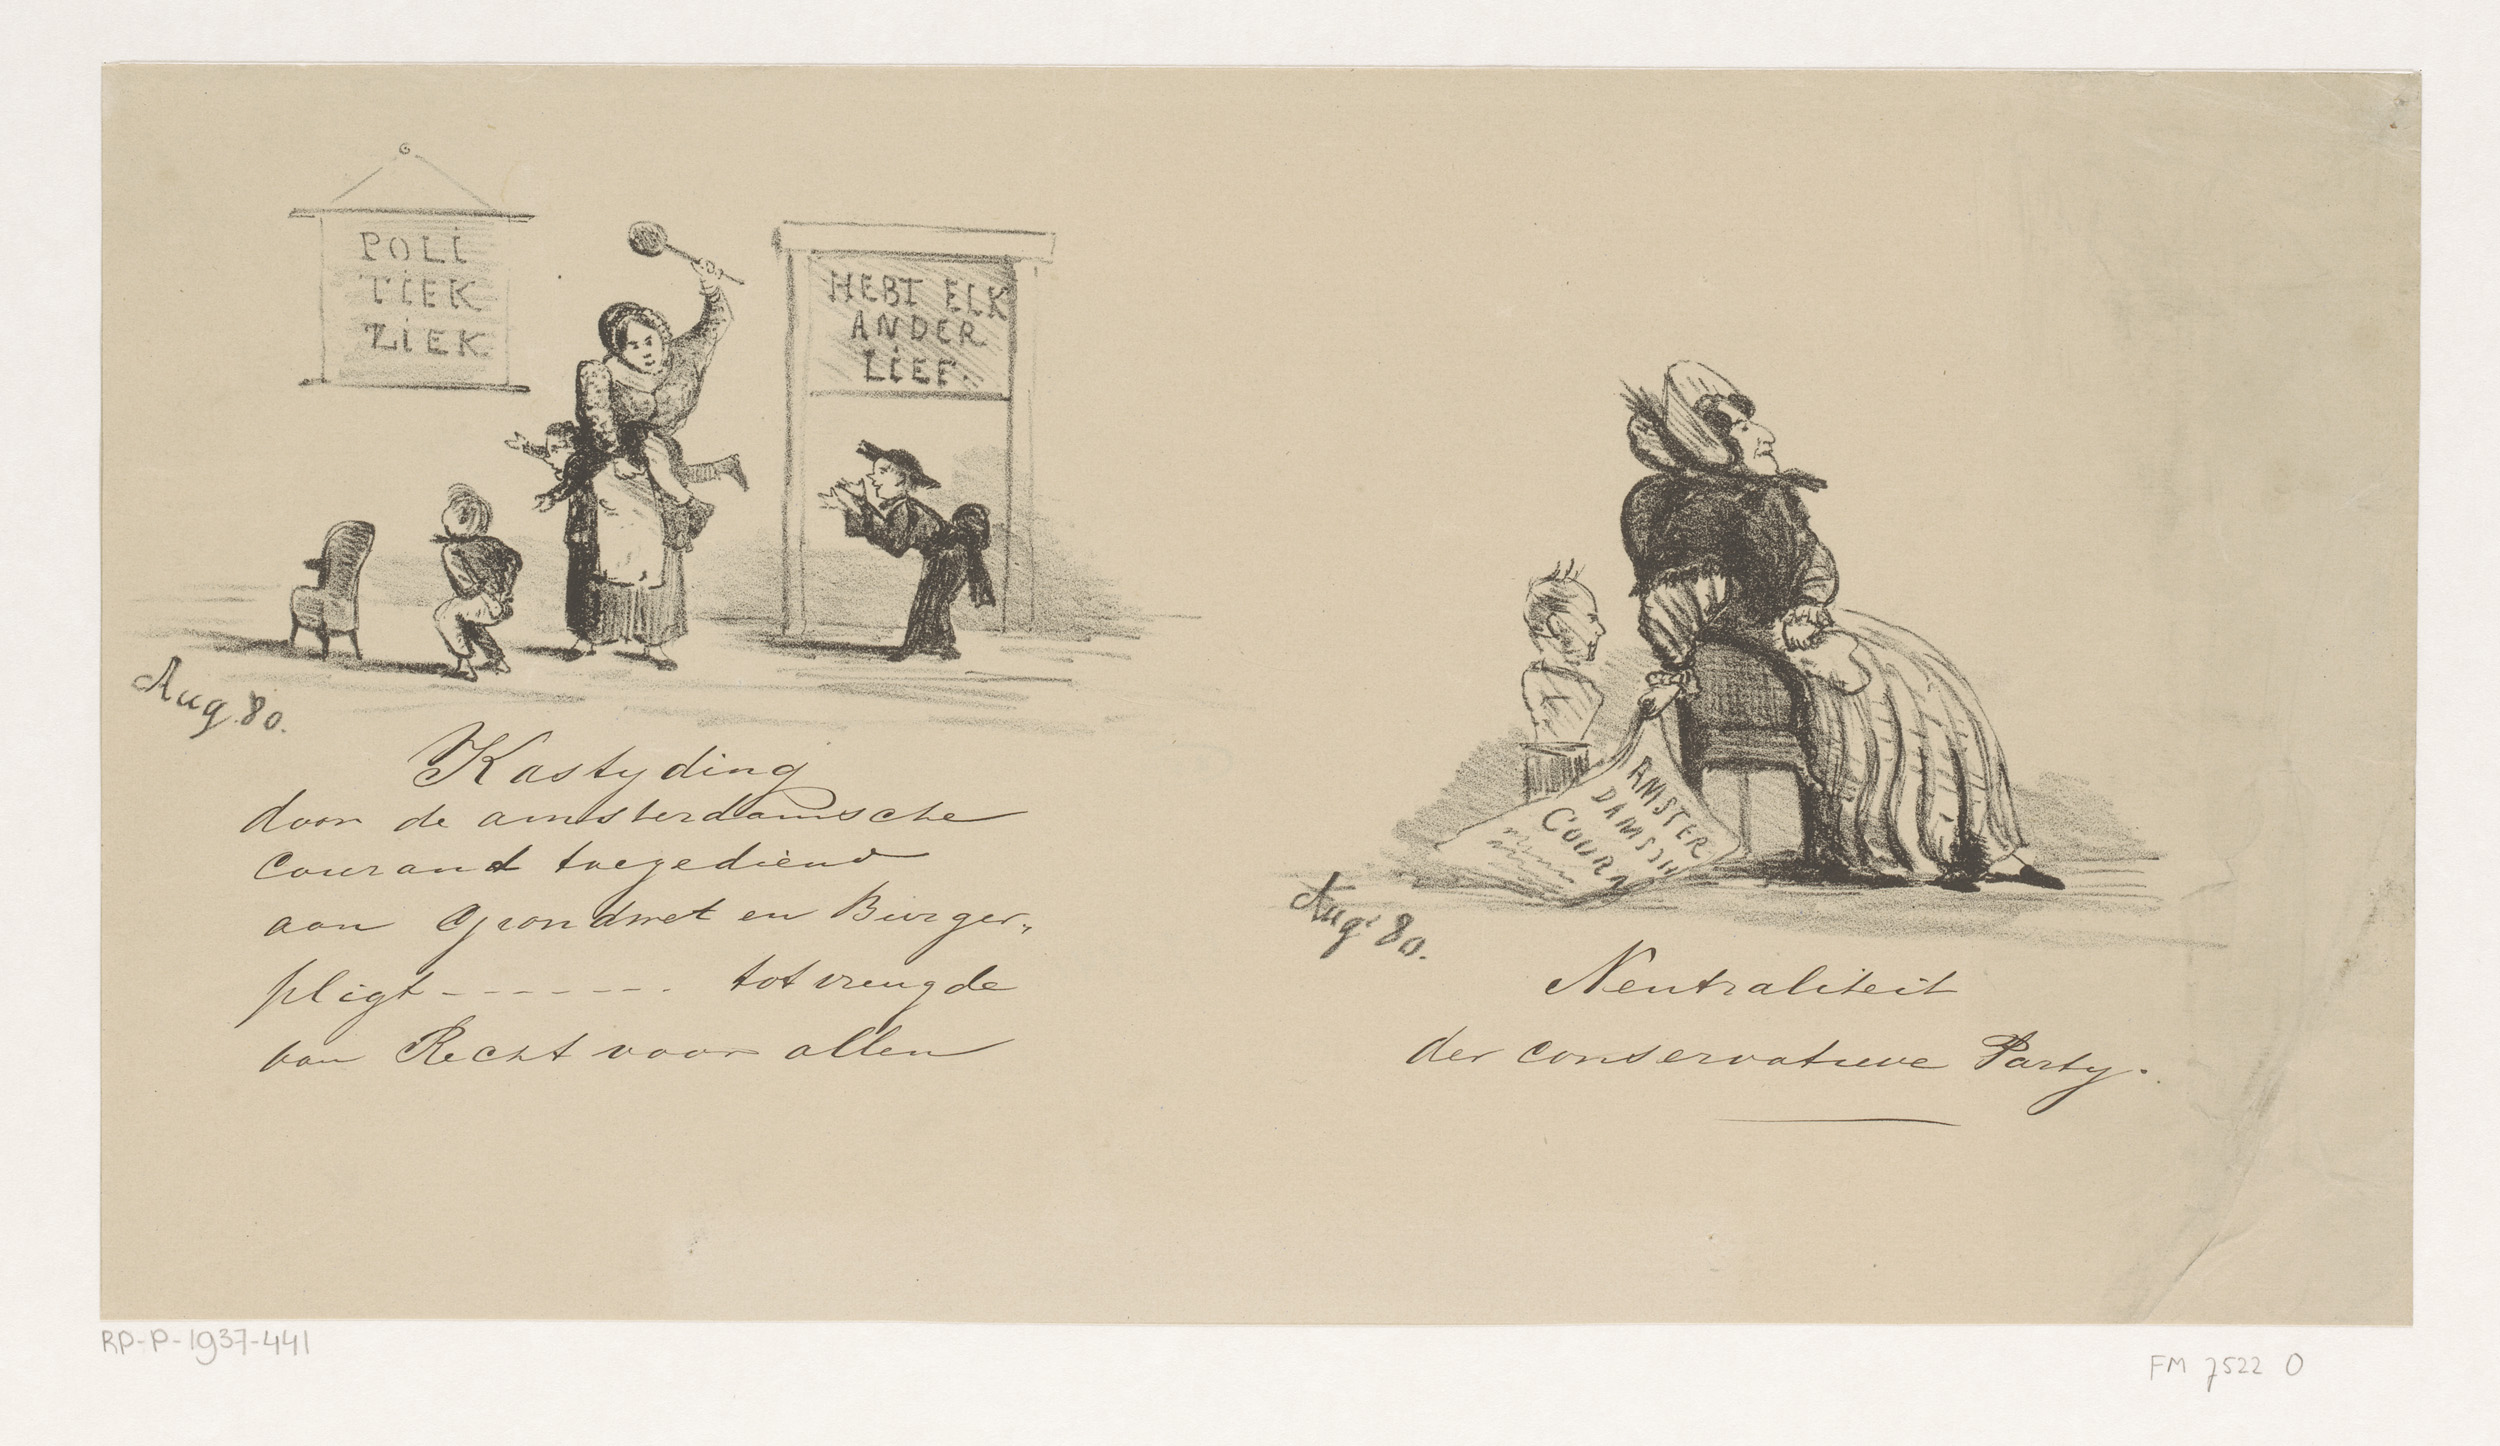 POLI
TIEK
ZIEK
HEBT ELK
ANDER
LIEF.
Aug. 80.
Kastyding
door de amsterdamsche
Courant toegediend
aan Grondwet en Burger„
pligt - - - - - - - . tot vreugde
van Recht voor allen
AMSTER
DAMSCH
COURA
Aug. 80.
Neutraliteit
der conservatieve Party.
RP-P-1937-441
FM 7522 O